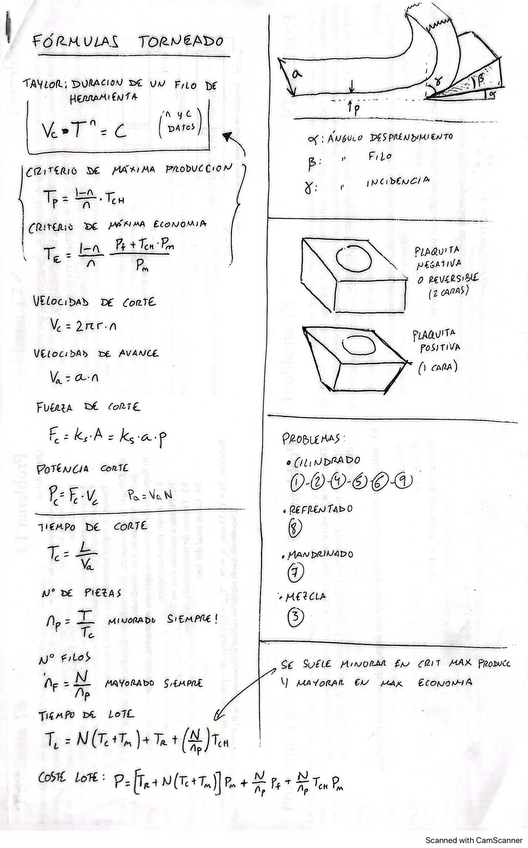 FÓRMULAS TORNEADO
TAYLOR: DURACION DE UN FILO DE
HERRAMIENTA
Vc · T^n = C (n y C DATOS)
CRITERIO DE MÁXIMA PRODUCCION
Tp = (1-n)/n · TCH
CRITERIO DE MÁXIMA ECONOMIA
TE = (1-n)/n · (Pf + TCH · Pm)/Pm
VELOCIDAD DE CORTE
Vc = 2πr·n
VELOCIDAD DE AVANCE
Va = a·n
FUERZA DE CORTE
Fc = ks·A = ks·a·p
POTENCIA CORTE
Pc = Fc·Vc
TIEMPO DE CORTE
Tc = L/Va
Nº DE PIEZAS
np = T/Tc MINORADO SIEMPRE!
Nº FILOS
nF = N/np MAYORADO SIEMPRE
TIEMPO DE LOTE
TL = N(Tc+Tm) + TR + (N/np)TCH
COSTE LOTE: P = [TR + N(Tc+Tm)] Pm + N/np Pf + N/np TCH Pm
a
p
γ
β
α
α: ÁNGULO DESPRENDIMIENTO
β: " FILO
γ: " INCIDENCIA
PLAQUITA
NEGATIVA
O REVERSIBLE
(2 CARAS)
PLAQUITA
POSITIVA
(1 CARA)
PROBLEMAS:
• CILINDRADO
1-2-4-5-6-9
• REFRENTADO
8
• MANDRINADO
7
• MEZCLA
3
SE SUELE MINORAR EN CRIT MAX PRODUCC
Y MAYORAR EN MAX ECONOMIA
Scanned with CamScanner